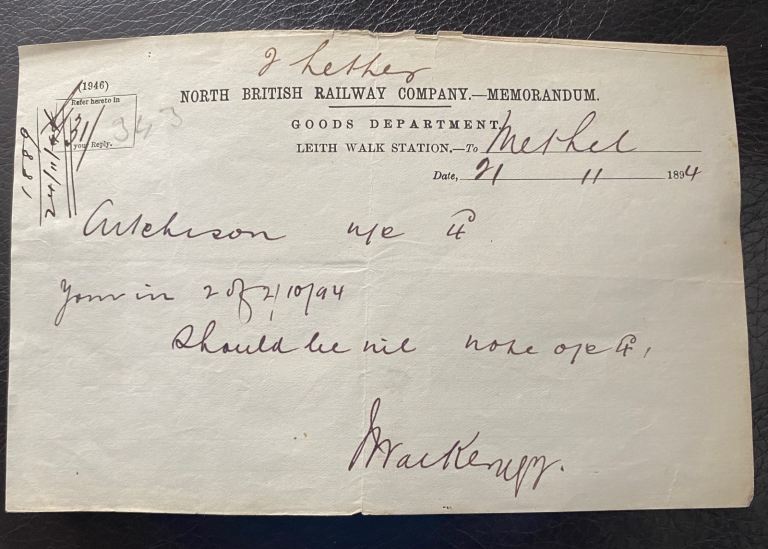 (1946)
Refer hereto in
31/
your Reply.
343
1889
24/11/94
NORTH BRITISH RAILWAY COMPANY.—MEMORANDUM.
GOODS DEPARTMENT.
LEITH WALK STATION.—To Methel
Date, 21 11 1894
Aitchison
2 of 2/10/94
Should be nil note